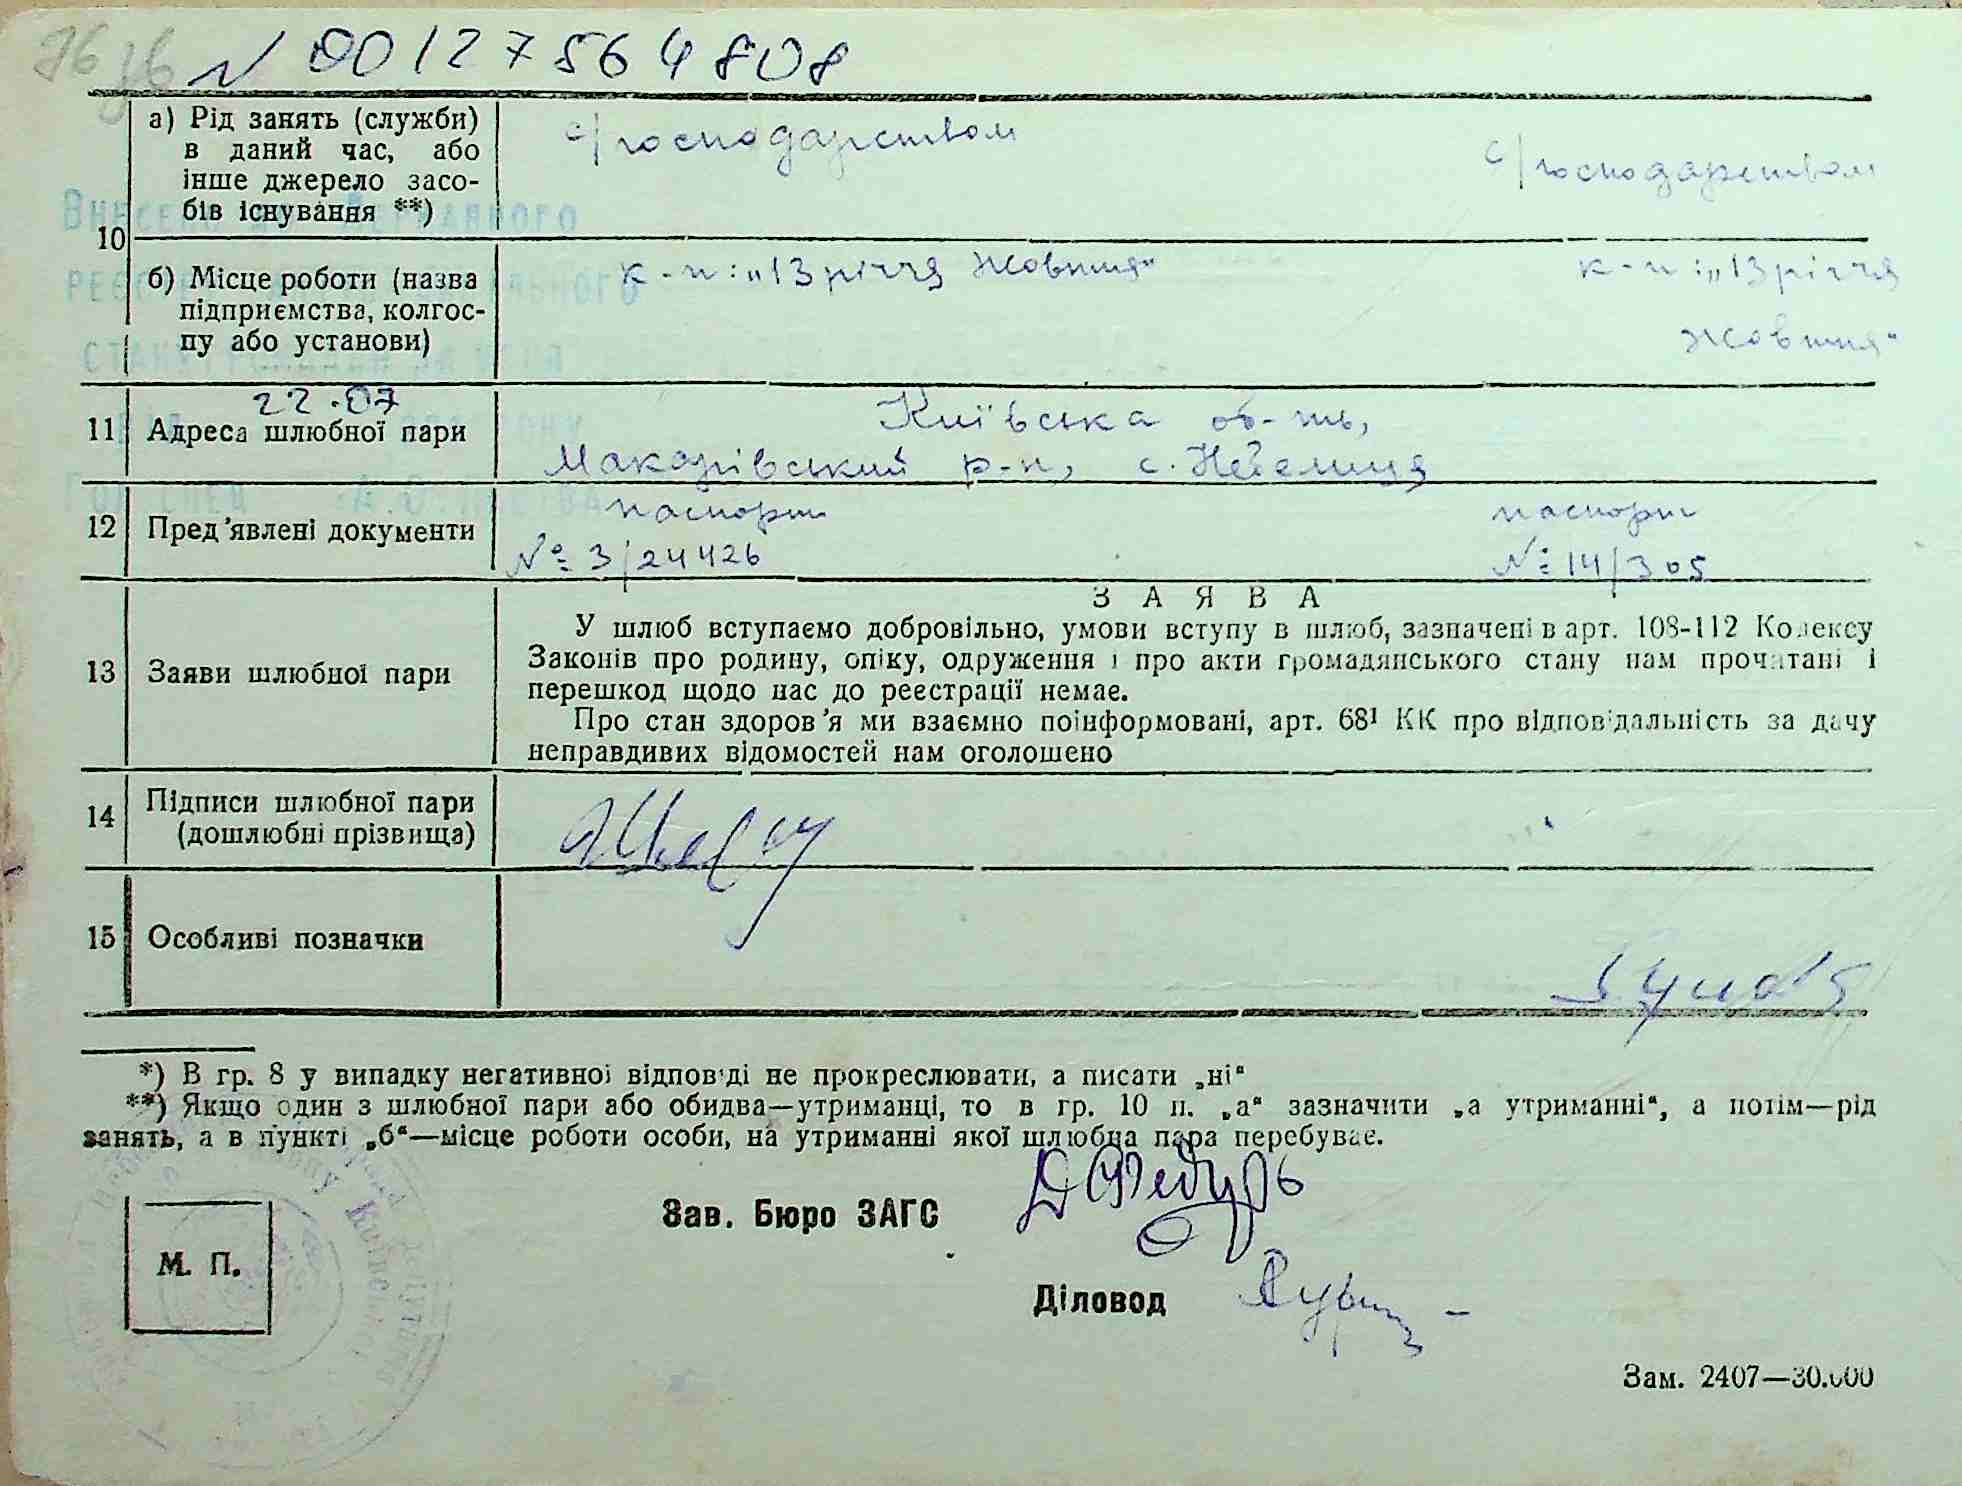 N 00127564808
а) Рід занять (служби)
в даний час, або
інше джерело засо-
бів існування **)
с/господарством
с/господарством
10
б) Місце роботи (назва
підприємства, колгос-
пу або установи)
к-п: „13 річчя Жовтня"
к-п: „13 річчя
Жовтня"
22.07
11 Адреса шлюбної пари
Київська об-ть,
Макарівський р-н, с.
12 Пред'явлені документи
паспорт
№ 3/24426
паспорт
№ 14/305
ЗАЯВА
13 Заяви шлюбної пари
У шлюб вступаємо добровільно, умови вступу в шлюб, зазначені в арт. 108-112 Кодексу
Законів про родину, опіку, одруження і про акти громадянського стану нам прочитані і
перешкод щодо нас до реєстрації немає.
Про стан здоров'я ми взаємно поінформовані, арт. 68¹ КК про відповідальність за дачу
неправдивих відомостей нам оголошено
14 Підписи шлюбної пари
(дошлюбні прізвища)
15 Особливі позначки
*) В гр. 8 у випадку негативної відповіді не прокреслювати, а писати „ні"
**) Якщо один з шлюбної пари або обидва—утриманці, то в гр. 10 п. „а" зазначити „а утриманні", а потім—рід
занять, а в пункті „б"—місце роботи особи, на утриманні якої шлюбна пара перебуває.
Зав. Бюро ЗАГС
М. П.
Діловод
Зам. 2407—30.000